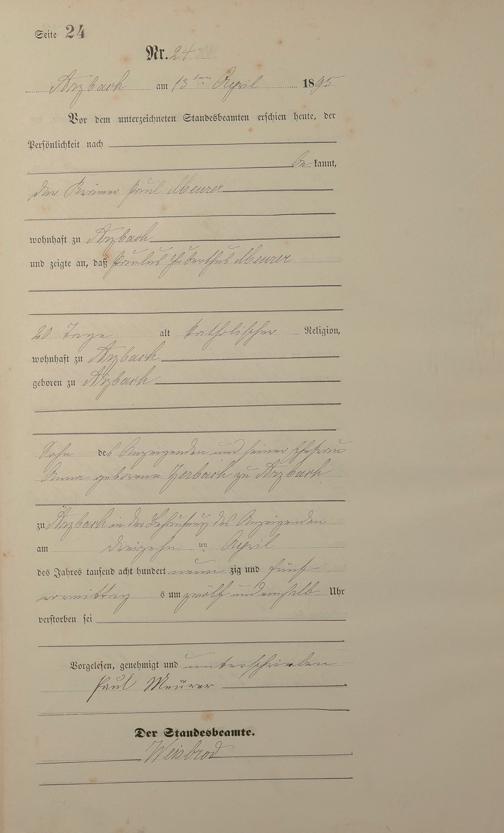 Seite 24
Nr. 24
Arzbach am 13ten April 1895
Vor dem unterzeichneten Standesbeamten erschien heute, der
Persönlichkeit nach
be kannt,
der Krämer Paul Meurer
wohnhaft zu Arzbach
und zeigte an, daß Paulus Hubertus Meurer
20 Tage alt katholischer Religion,
wohnhaft zu Arzbach
geboren zu Arzbach
Sohn des Anzeigenden und seiner Ehefrau
Anna geborene Herbach zu Arzbach
zu Arzbach in der Behausung des Anzeigenden
am dreizehn ten April
des Jahres tausend acht hundert neun zig und fünf
ormittag s um zwölf und einhalb Uhr
verstorben sei
Vorgelesen, genehmigt und unterschrieben
Paul Meurer
Der Standesbeamte.
Weisbrod